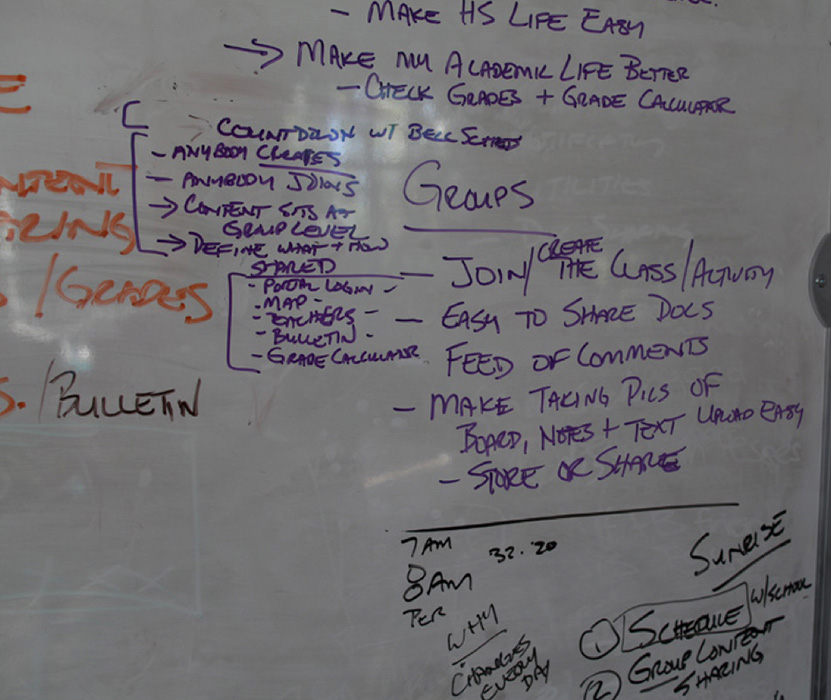 - MAKE HS LIFE EASY
→ MAKE MY ACADEMIC LIFE BETTER
- CHECK GRADES + GRADE CALCULATOR
COUNTDOWN W/ BELL SCHEDS
- ANYBODY CREATES
- ANYBODY JOINS
→ CONTENT SITS AT
GROUP LEVEL
→ DEFINE WHAT + HOW
SHARED
- PORTAL LOGIN -
- MAP -
- TEACHERS -
- BULLETIN -
- GRADE CALCULATOR
GROUPS
- JOIN/CREATE THE CLASS/ACTIVITY
- EASY TO SHARE DOCS
FEED OF COMMENTS
- MAKE TAKING PICS OF
BOARD, NOTES + TEXT UPLOAD EASY
- STORE OR SHARE
E
/GRADES
S./BULLETIN
7AM
8AM
PER
32.20
WHY
CHANGES
EVERY
DAY
SUNRISE
1 SCHEDULE W/SCHOOL
2 GROUP CONTENT
SHARING